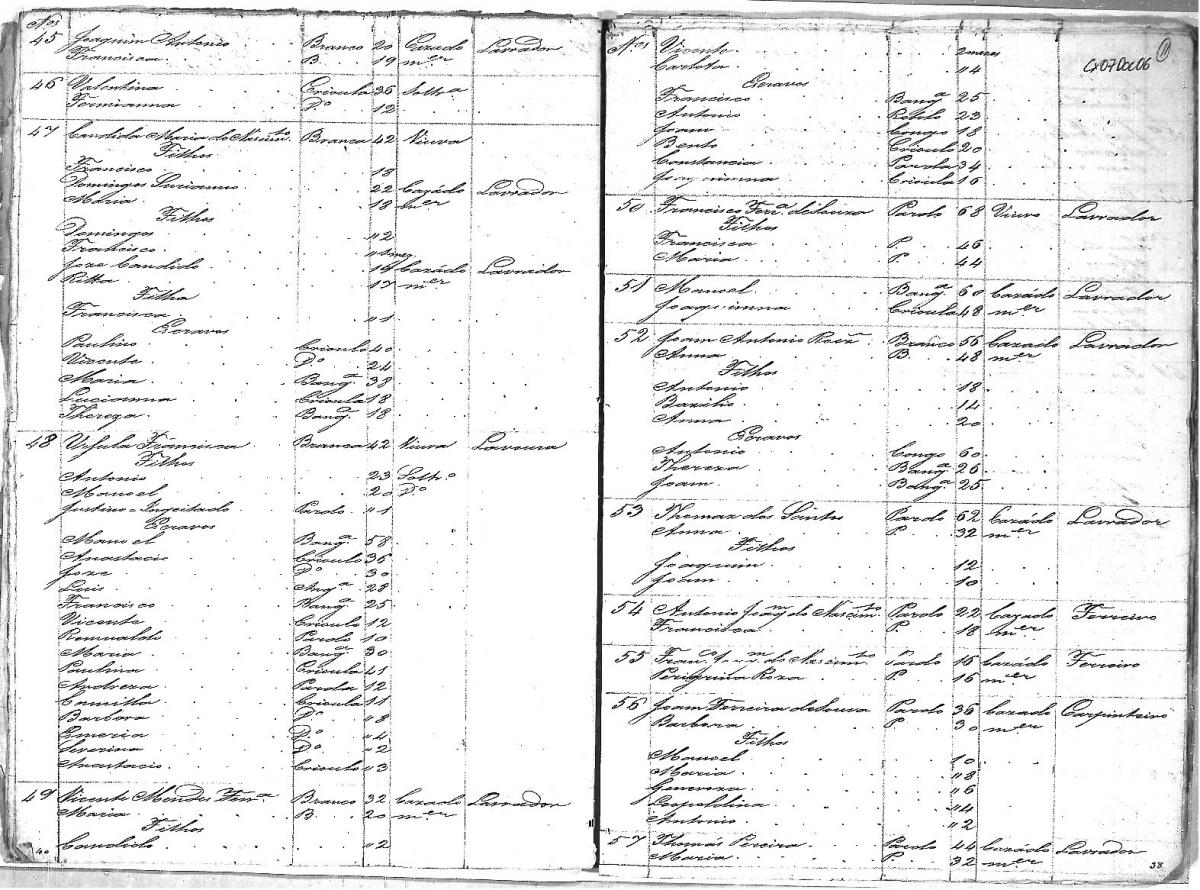 Nos
45 Joaquim Antonio Branco 20 Cazado Lavrador
Francisca B. 19 mer
46 Valentina Crioula 36 Soltra
Do 12
47 Candida Maria do Nascimto Branca 42 Viuva
Filhos
Francisco 18
Domingos 22 Cazádo Lavrador
Maria 18 mer
Filhos
Domingos "2
Francisco
Joze Candido 19 Cazádo Lavrador
Ritha 17 mer
Filha
Francisca "1
Escravos
Paulino Crioulo 40
Vicente Do 24
Maria Banga 38
Lucianna Crioula 18
Thereza Banga 18
48 Ursula Francisca Branca 42 Viuva Lavoura
Filhos
Antonio 23 Soltro
Manoel 20 Do
Justino Ingeitado Pardo "1
Escravos
Manoel Banga 58
Anastacio Crioulo 36
Joze Do 30
Luis Anga 28
Francisco Banga 25
Vicente Crioulo 12
Romualdo Pardo 10
Maria Banga 30
Paulina Crioula 41
Andreza Parda 12
Camilla Crioula 11
Barbora Do "8
Emeria Do "4
Severina Do "2
Anastacio Crioulo "3
49 Vicente Mendes Ferra Branco 32 Cazado Lavrador
Maria B. 20 mer
Filhos
Candido "2
40
Nos Vicente 2 mezes
Carlota "4
CX07Doc06
Escravos
Francisco Banga 25
Antonio Pardo 23
Joam Congo 18
Bento Crioulo 20
Constancia Parda 34
Joaquinna Crioula 16
50 Francisco Ferra de Souza Pardo 68 Viuvo Lavrador
Filhos
Francisca P. 46
Maria P. 44
51 Manoel Banga 60 Cazádo Lavrador
Joaquinna Crioula 48 mer
52 Joam Antonio Branco 56 Cazado Lavrador
Anna B. 48 mer
Filhos
Antonio 18
Bazilio 14
Anna 20
Escravos
Antonio Congo 60
Thereza Banga 26
Joam Banga 25
53 Thomaz dos Santos Pardo 62 Cazádo Lavrador
Anna P. 32 mer
Filhos
Joaquim 12
Joam 10
54 Antonio Joaqm do Nascimto Pardo 22 Cazado Ferreiro
Francisca P. 18 mer
55 Franco Joaqm do Nascimto Pardo 16 Cazádo Ferreiro
Peregrina Roza P. 16 mer
56 Joam Ferreira de Souza Pardo 36 Cazado Carpinteiro
Barbora P. 30 mer
Filhos
Manoel 10
Maria "8
Genoveza "6
Leopoldina "4
Antonio "2
57 Thomás Pereira Pardo 44 Cazádo Lavrador
Maria P. 32 mer
38